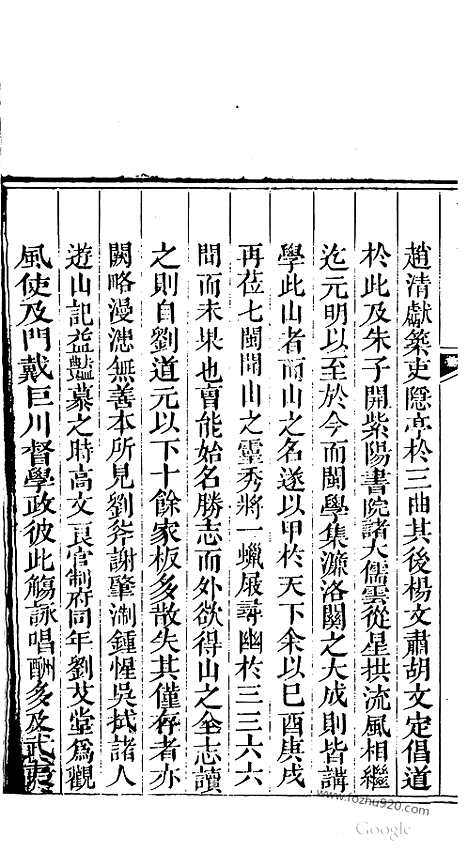 趙清獻築吏隱亭於三曲其後楊文肅胡文定倡道
於此及朱子開紫陽書院諸大儒雲從星拱流風相繼
迄元明以至於今而閩學集濂洛關之大成則皆講
學此山者而山之名遂以甲於天下余以巳酉庚戌
再莅七閩問山之靈秀將一蠟屐尋幽於三三六六
間而未果也曹能始名勝志而外欲得山之全志讀
之則自劉道元以下十餘家板多散失其僅存者亦
闕略漫漶無善本所見劉斧謝肇淛鍾惺吳拭諸人
遊山記益豔慕之時高文良官制府同年劉艾堂為觀
風使及門戴巨川督學政彼此觴詠唱酬多及武夷
www.fozhu920.com
Google